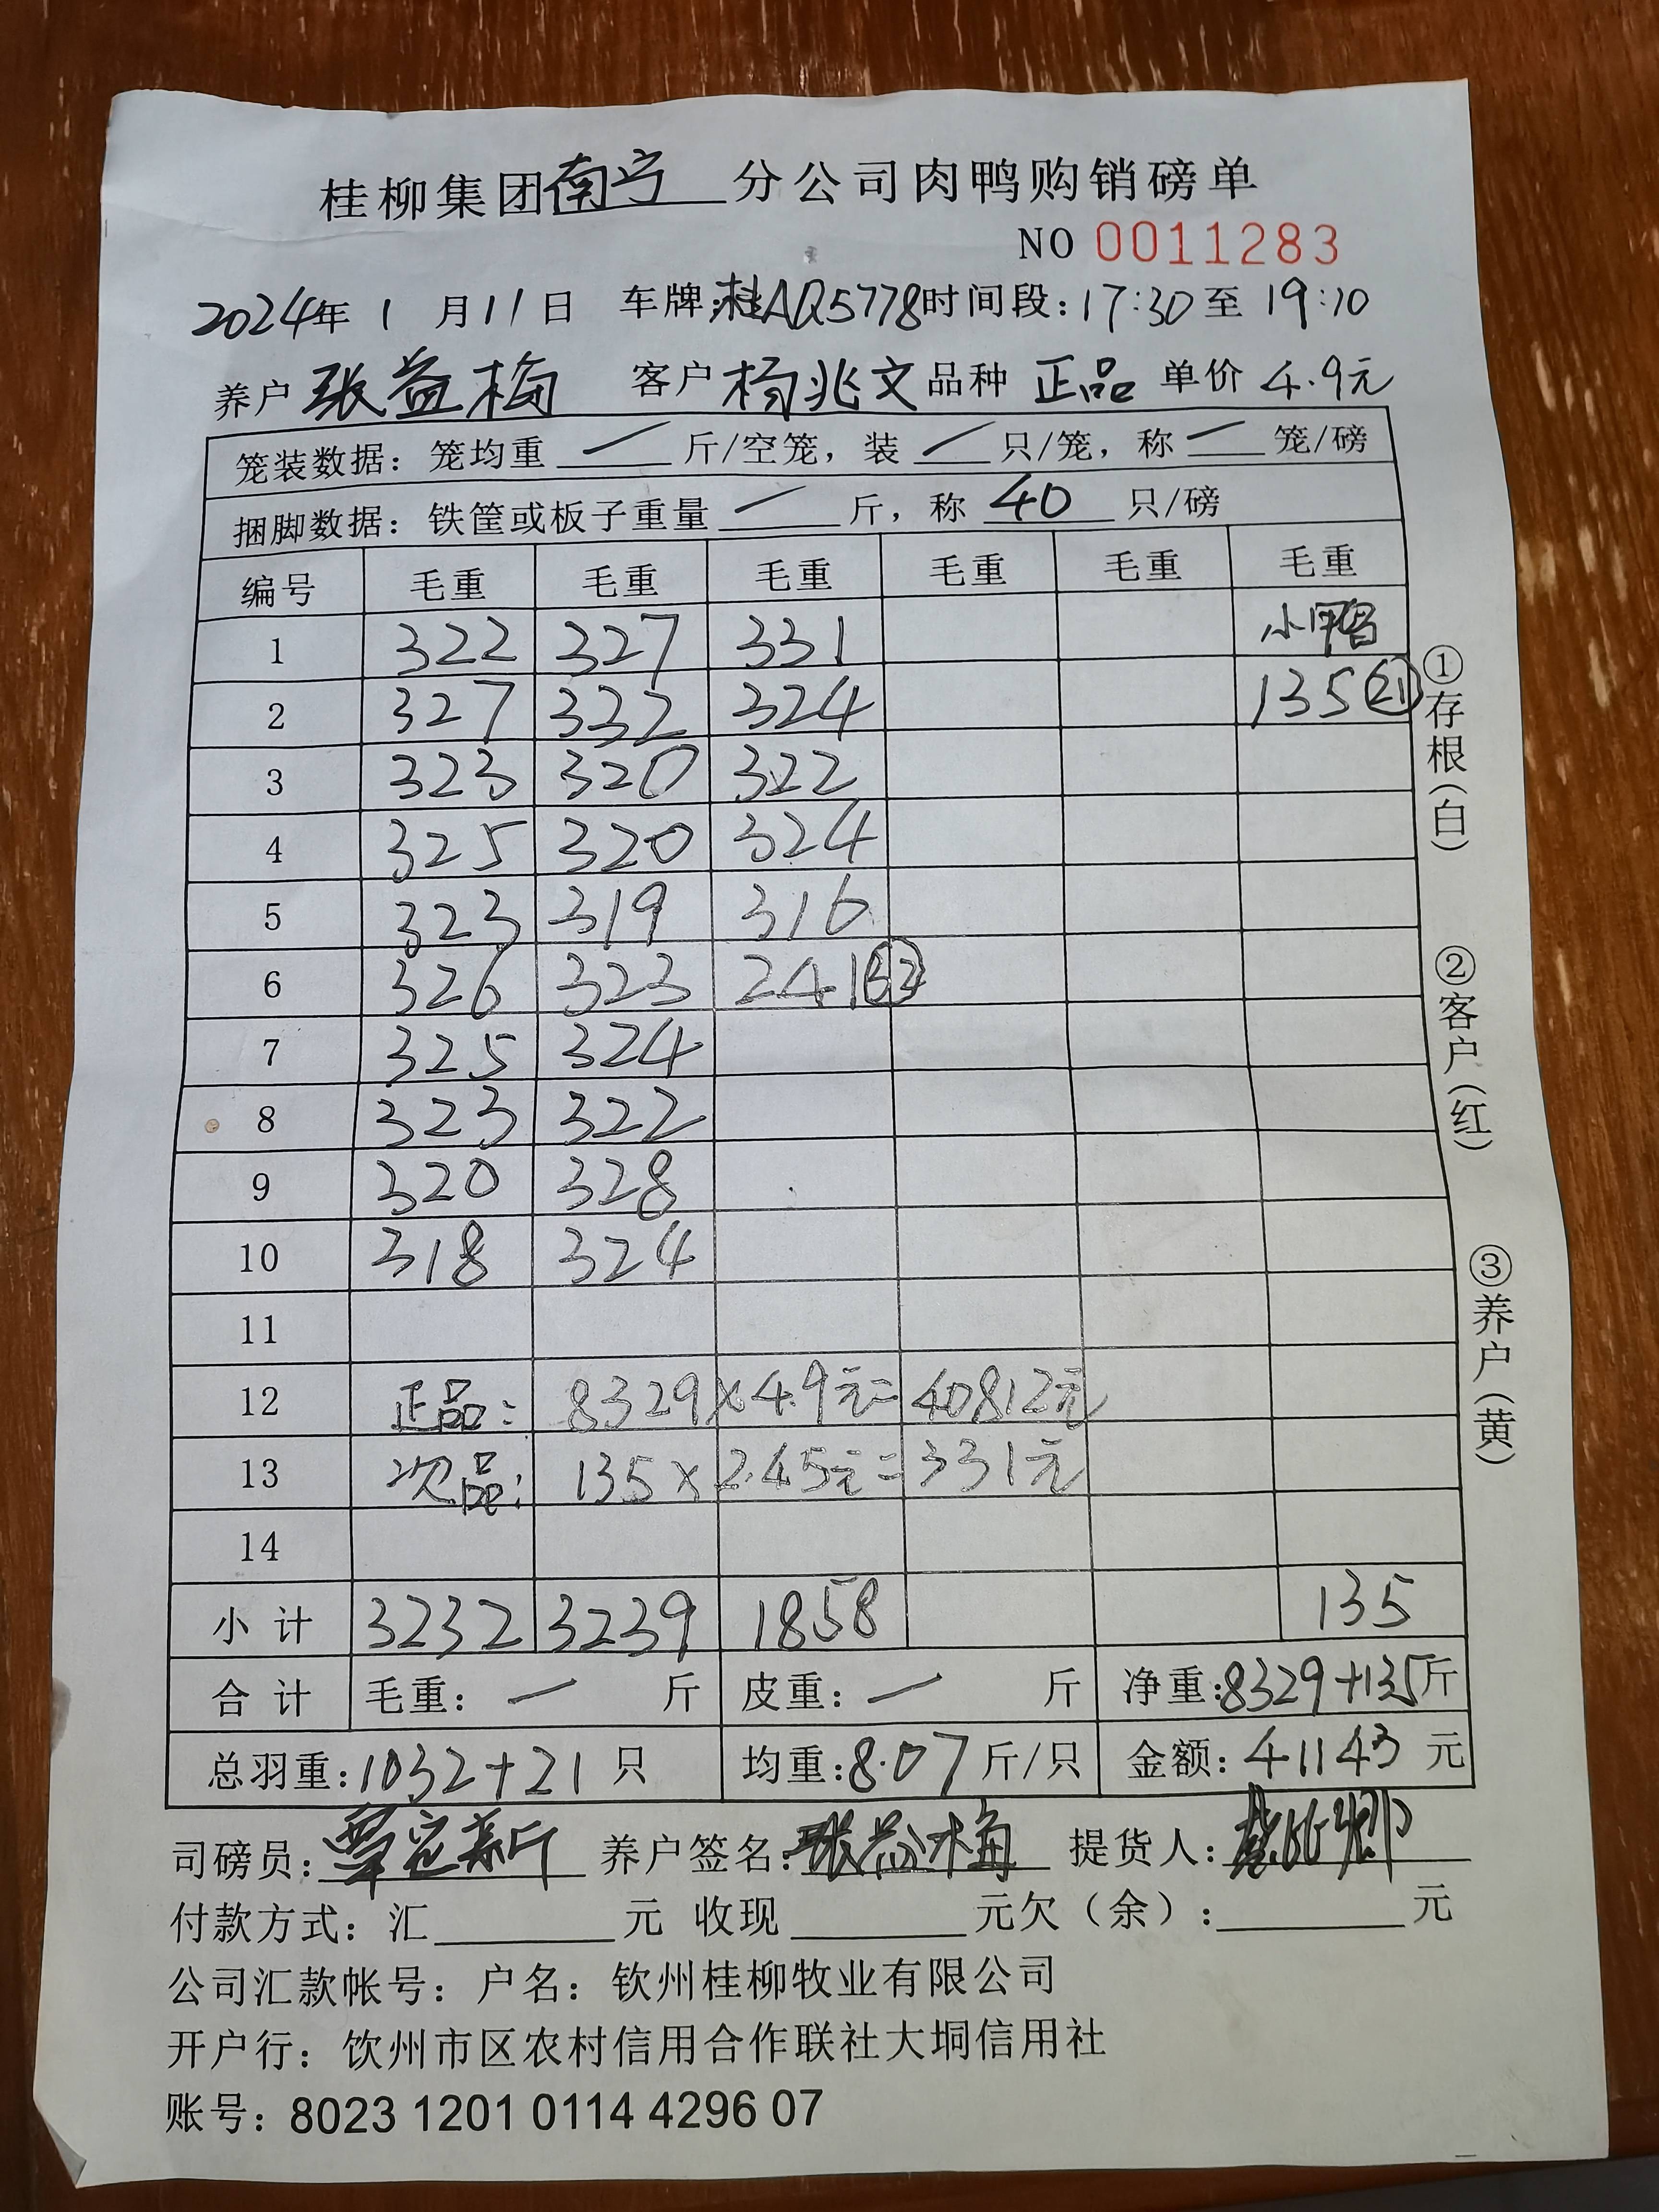 桂柳集团南宁分公司肉鸭购销磅单
NO 0011283
2024年 1 月 11 日 车牌:桂AQ5778 时间段:17:30 至 19:10
养户 张益梅 客户 杨兆文 品种 正品 单价 4.9元
笼装数据:笼均重 一 斤/空笼,装 一 只/笼,称 一 笼/磅
捆脚数据:铁筐或板子重量 一 斤,称 40 只/磅
编号 毛重 毛重 毛重 毛重 毛重 毛重
1 322 327 331 小鸭
2 327 332 324 135 ㉑
3 323 320 322
4 325 320 324
5 323 319 316
6 326 323 241 ㉜
7 325 324
8 323 322
9 320 328
10 318 324
11
12 正品: 8329×4.9元=40812元
13 次品: 135×2.45元=331元
14
小计 3232 3239 1858 135
合计 毛重:一 斤 皮重:一 斤 净重:8329+135斤
总羽重:1032+21 只 均重:8.07斤/只 金额:41143 元
司磅员:覃定新 养户签名:张益梅 提货人:
付款方式:汇 元 收现 元欠(余): 元
公司汇款帐号:户名:钦州桂柳牧业有限公司
开户行:饮州市区农村信用合作联社大垌信用社
账号:8023 1201 0114 4296 07
①存根(白)
②客户(红)
③养户(黄)